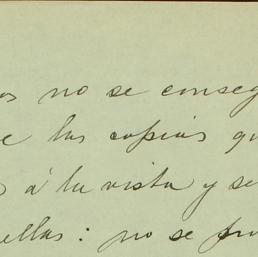 os no se conseg
e las copias qu
á la vista y se
ellas: no se pu